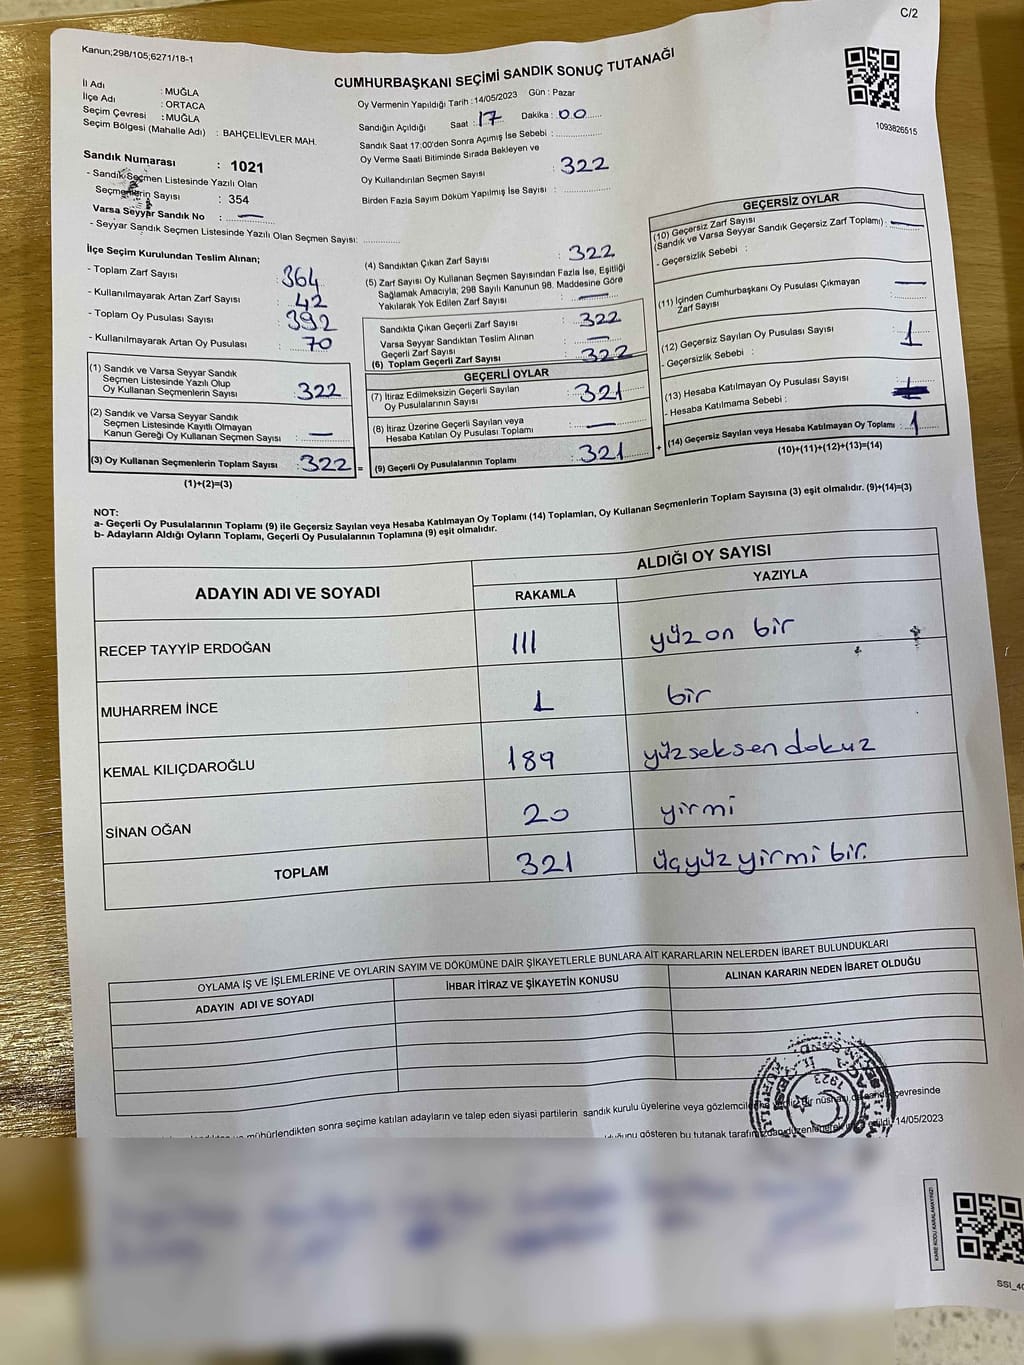 C/2
Kanun;298/105;6271/18-1
CUMHURBAŞKANI SEÇİMİ SANDIK SONUÇ TUTANAĞI
İl Adı : MUĞLA
İlçe Adı : ORTACA
Seçim Çevresi : MUĞLA
Seçim Bölgesi (Mahalle Adı) : BAHÇELİEVLER MAH.
Sandık Numarası : 1021
- Sandık Seçmen Listesinde Yazılı Olan
Seçmenlerin Sayısı : 354
Varsa Seyyar Sandık No : —
- Seyyar Sandık Seçmen Listesinde Yazılı Olan Seçmen Sayısı: ..............
Oy Vermenin Yapıldığı Tarih : 14/05/2023 Gün : Pazar
Sandığın Açıldığı Saat : 17 Dakika : 00
Sandık Saat 17:00'den Sonra Açımış İse Sebebi : ..............
Oy Verme Saati Bitiminde Sırada Bekleyen ve
Oy Kullandırılan Seçmen Sayısı : 322
Birden Fazla Sayım Döküm Yapılmış İse Sayısı : ..............
1093826515
İlçe Seçim Kurulundan Teslim Alınan;
- Toplam Zarf Sayısı : 364
- Kullanılmayarak Artan Zarf Sayısı : 42
- Toplam Oy Pusulası Sayısı : 392
- Kullanılmayarak Artan Oy Pusulası : 70
(1) Sandık ve Varsa Seyyar Sandık
Seçmen Listesinde Yazılı Olup
Oy Kullanan Seçmenlerin Sayısı : 322
(2) Sandık ve Varsa Seyyar Sandık
Seçmen Listesinde Kayıtlı Olmayan
Kanun Gereği Oy Kullanan Seçmen Sayısı : —
(3) Oy Kullanan Seçmenlerin Toplam Sayısı : 322 =
(1)+(2)=(3)
(4) Sandıktan Çıkan Zarf Sayısı : 322
(5) Zarf Sayısı Oy Kullanan Seçmen Sayısından Fazla İse, Eşitliği
Sağlamak Amacıyla; 298 Sayılı Kanunun 98. Maddesine Göre
Yakılarak Yok Edilen Zarf Sayısı : —
Sandıkta Çıkan Geçerli Zarf Sayısı : 322
Varsa Seyyar Sandıktan Teslim Alınan
Geçerli Zarf Sayısı : —
(6) Toplam Geçerli Zarf Sayısı : 322
GEÇERLİ OYLAR
(7) İtiraz Edilmeksizin Geçerli Sayılan
Oy Pusulalarının Sayısı : 321
(8) İtiraz Üzerine Geçerli Sayılan veya
Hesaba Katılan Oy Pusulası Toplamı : —
(9) Geçerli Oy Pusulalarının Toplamı : 321 +
GEÇERSİZ OYLAR
(10) Geçersiz Zarf Sayısı
(Sandık ve Varsa Seyyar Sandık Geçersiz Zarf Toplamı) : —
- Geçersizlik Sebebi :
(11) İçinden Cumhurbaşkanı Oy Pusulası Çıkmayan
Zarf Sayısı : —
(12) Geçersiz Sayılan Oy Pusulası Sayısı : 1
- Geçersizlik Sebebi :
(13) Hesaba Katılmayan Oy Pusulası Sayısı
- Hesaba Katılmama Sebebi :
(14) Geçersiz Sayılan veya Hesaba Katılmayan Oy Toplamı : 1
(10)+(11)+(12)+(13)=(14)
NOT:
a- Geçerli Oy Pusulalarının Toplamı (9) ile Geçersiz Sayılan veya Hesaba Katılmayan Oy Toplamı (14) Toplamları, Oy Kullanan Seçmenlerin Toplam Sayısına (3) eşit olmalıdır. (9)+(14)=(3)
b- Adayların Aldığı Oyların Toplamı, Geçerli Oy Pusulalarının Toplamına (9) eşit olmalıdır.
ADAYIN ADI VE SOYADI
ALDIĞI OY SAYISI
RAKAMLA YAZIYLA
RECEP TAYYİP ERDOĞAN 111 yüz on bir
MUHARREM İNCE 1 bir
KEMAL KILIÇDAROĞLU 189 yüzseksen dokuz
SİNAN OĞAN 20 yirmi
TOPLAM 321 üçyüz yirmi bir.
OYLAMA İŞ VE İŞLEMLERİNE VE OYLARIN SAYIM VE DÖKÜMÜNE DAİR ŞİKAYETLERLE BUNLARA AİT KARARLARIN NELERDEN İBARET BULUNDUKLARI
ADAYIN ADI VE SOYADI İHBAR İTİRAZ VE ŞİKAYETİN KONUSU ALINAN KARARIN NEDEN İBARET OLDUĞU
mühürlendikten sonra seçime katılan adayların ve talep eden siyasi partilerin sandık kurulu üyelerine veya
gösteren bu tutanak 14/05/2023
1923
KARE KODU KARALAMAYINIZ!